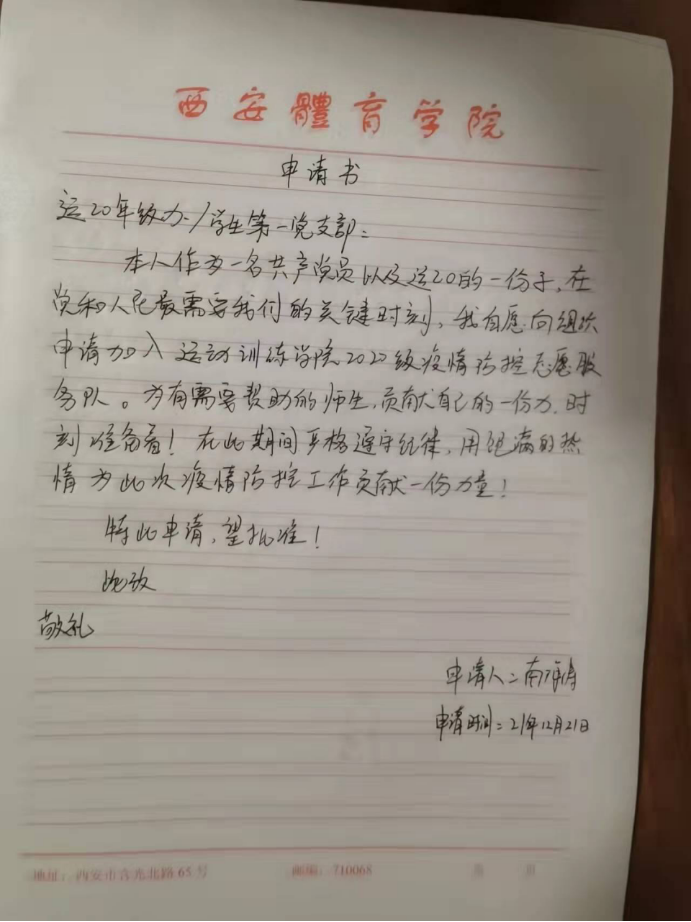 西安體育学院
申请书
运20年级办、学生第一党支部：
本人作为一名共产党员以及运20的一份子，在
党和人民最需要我们的关键时刻，我自愿向组织
申请加入运动训练学院2020级疫情防控志愿服
务队。为有需要帮助的师生，贡献自己的一份力，时
刻准备着！在此期间严格遵守纪律，用饱满的热
情为此次疫情防控工作贡献一份力量！
特此申请，望批准！
此致
敬礼
申请人：南
申请时间：21年12月21日
地址：西安市含光北路65号 邮编：710068 第 页